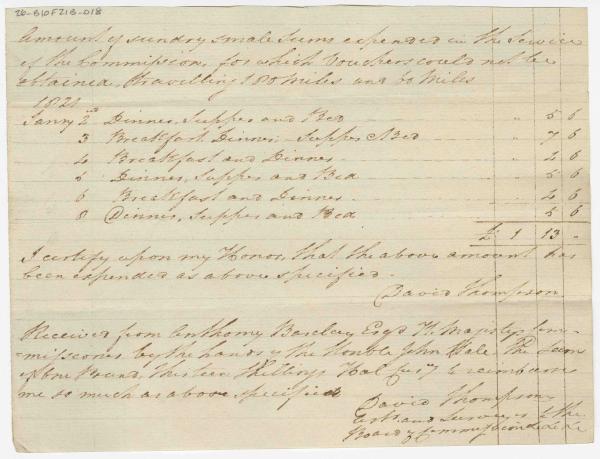 26-B10F21B-018
Amount of sundry small sums expended in the Service
of the Commission, for which Vouchers could not be
obtained, travelling 180 Miles and 60 Miles
1821
Janry 2nd Dinner, Supper and Bed " 5 6
3 Breakfast, Dinner, Supper & Bed " 7 6
4 Breakfast and Dinner " 4 6
5 Dinner, Supper and Bed " 5 6
6 Breakfast and Dinner " 4 6
8 Dinner, Supper and Bed 5 6
£ 1 13 -
I certify upon my Honor, that the above amount has
been expended as above specified.
David Thompson
Received from Anthony Barclay Esqr. H. Majestys Com-
-missioner by the hands of the Honble John Hale The Sum
of One Pound, Thirteen Shillings Hal Cury to reimburse
me so much as above specified
David Thompson
Astr and Surveyor to the
Board of Commissioners